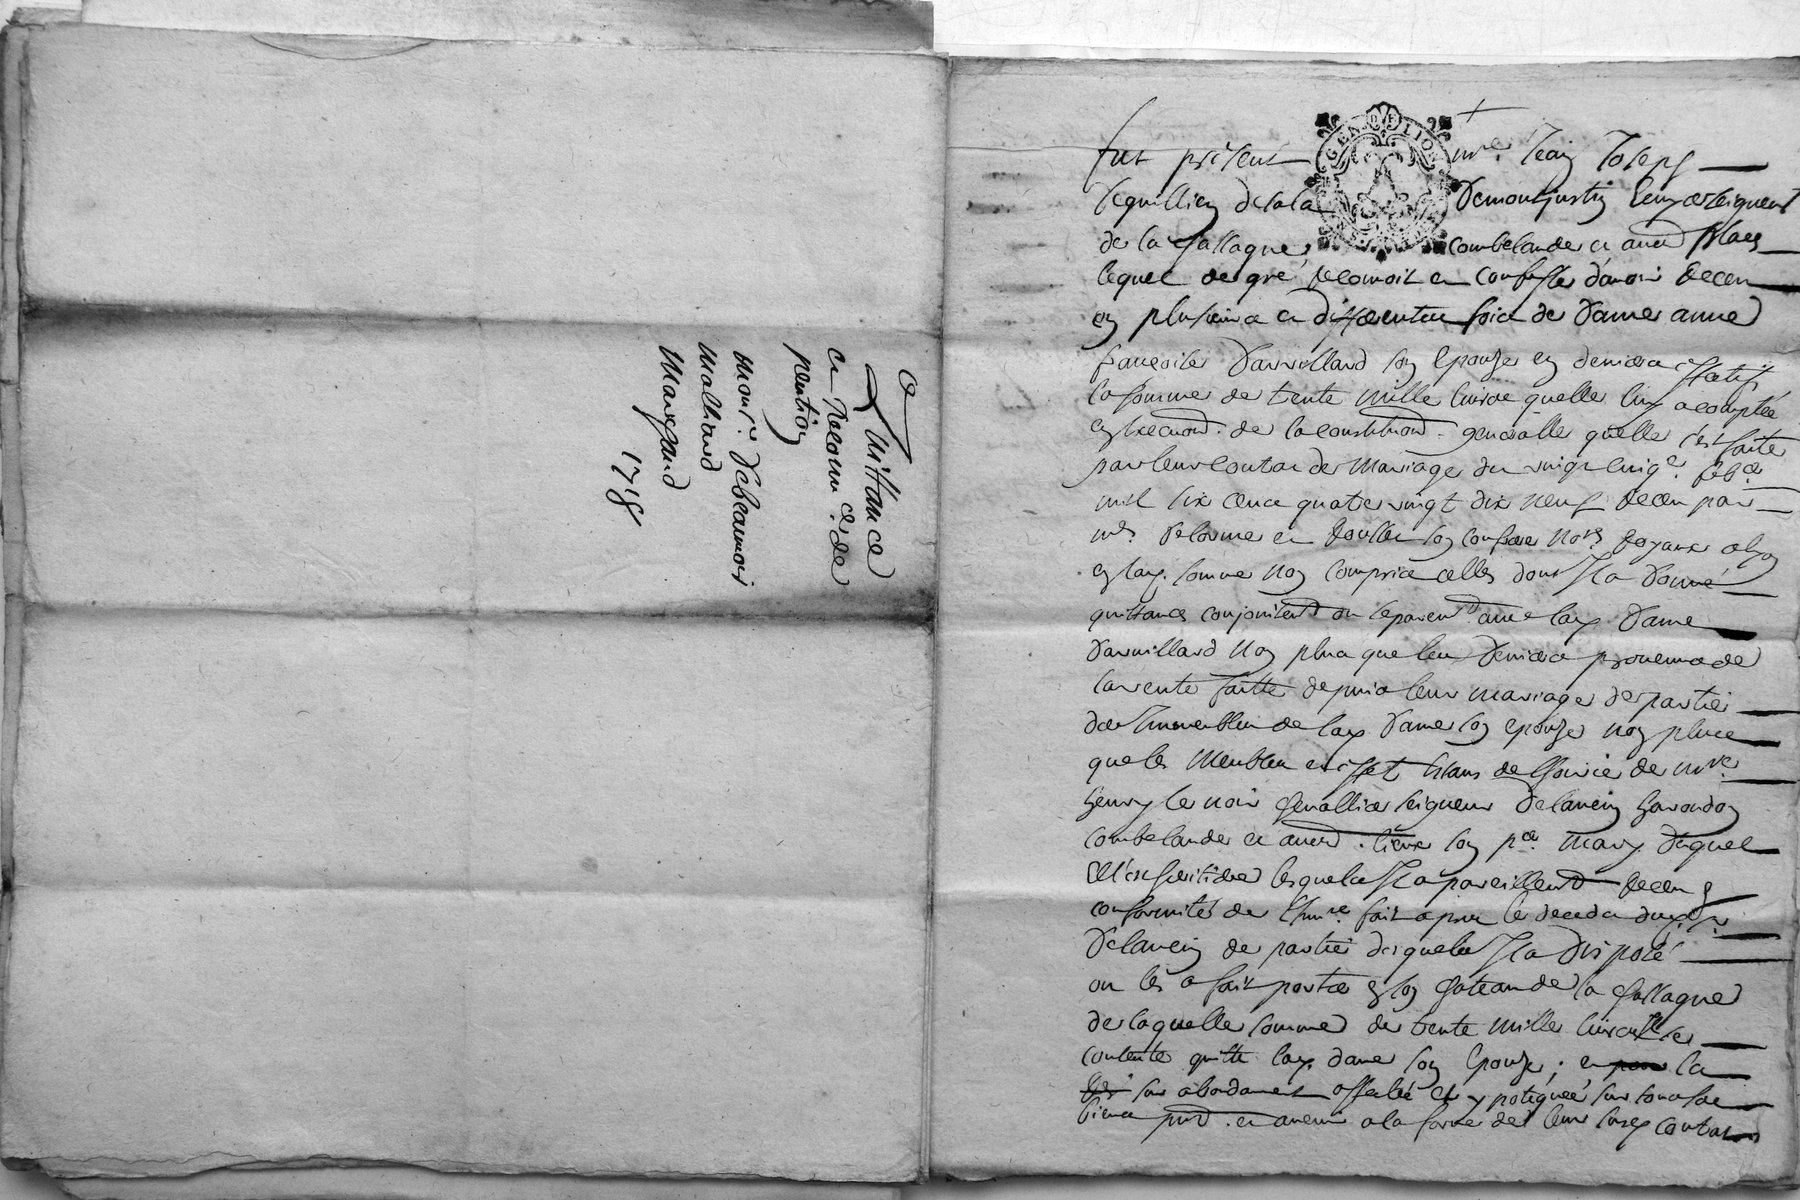 Quittance
et Reconn.ce de
pention
Mons.r Debeaumois
Malhiard
Marchand
1718
GEN. DE LION
fut présent m.re Jean Joseph
de la Demontjustin
de la Challagne, Combelande et autres places
lequel de gré reconnoit et confesse d'avoir receu
en plusieurs et differentes fois de Dame anne
françoise Darvillard son epouse en deniers effectifs
la somme de trente mille livres quelle luy a comptée
en de la constitution generalle quelle s'est faitte
par leur contrat de Mariage du vingt cinq.e feb.er
mil six cents quatre vingt dix neuf receu par
m.e Delorme et son confrere no.re
en lad. somme non compris celles dont Il a donné
quittance conjointem.t ou separem.t avec lad. Dame
Darvillard Non plus que les deniers provenus de
la vente faitte depuis leur mariage de partie
des Immeubles de lad. Dame son epouse non plus
que les Meubles et effets de de m.re
henry le noir chevallier seigneur Delancin
Combelande et autres lieux son p.er Mary duquel
Elle est heritiere lesquels Il a pareillem.t receu en
conformité de l'Inv.re fait apres le deceds dud. s.r
Delancin de partie desquels Il a Disposé
ou les a fait porter en son chateau de la Challagne
de laquelle somme de trente mille livres Il se
contente quitte lad. dame son Epouse; et la
sur abondamment affectée et ypotequée sur tous ses
biens pnts. et avenir a la forme de leur susd. contrat